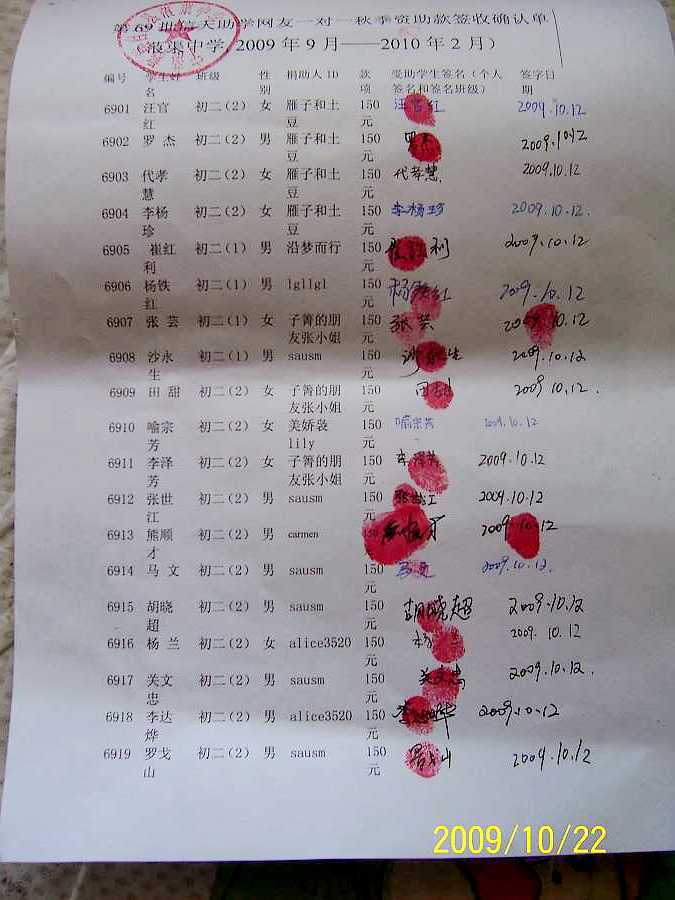 第69批 天助学网友一对一秋季资助款签收确认单
集中学，2009年9月——2010年2月）
编号 学生姓 班级 性 捐助人ID 款 受助学生签名（个人 签字日
名 别 项 签名和签名班级） 期
6901 汪官 初二(2) 女 雁子和土 150 汪官红 2009.10.12
红 豆 元
6902 罗 杰 初二(2) 男 雁子和土 150 罗杰 2009.10.12
豆 元
6903 代孝 初二(2) 女 雁子和土 150 代孝慧 2009.10.12
慧 豆 元
6904 李杨 初二(2) 女 雁子和土 150 李杨珍 2009.10.12.
珍 豆 元
6905 崔红 初二(1) 男 沿梦而行 150 崔红利 2009.10.12
利 元
6906 杨铁 初二(1) 男 lgllgl 150 杨铁红 2009.10.12
红 元
6907 张 芸 初二(1) 女 子箐的朋 150 张芸 2009.10.12
友张小姐 元
6908 沙永 初二(1) 男 sausm 150 沙永生 2009.10.12
生 元
6909 田 甜 初二(2) 女 子箐的朋 150 田甜 2009.10.12.
友张小姐 元
6910 喻宗 初二(2) 女 美娇袭 150 喻宗芳 2009.10.12
芳 lily 元
6911 李泽 初二(2) 女 子箐的朋 150 李泽芳 2009.10.12
芳 友张小姐 元
6912 张世 初二(2) 男 sausm 150 张世江 2009.10.12
江 元
6913 熊顺 初二(2) 男 carmen 150 2009.10.12
才 元
6914 马 文 初二(2) 男 sausm 150 马文 2009.10.12.
元
6915 胡晓 初二(2) 男 sausm 150 胡晓超 2009.10.12
超 元
6916 杨 兰 初二(2) 女 alice3520 150 杨兰 2009.10.12
元
6917 关文 初二(2) 男 sausm 150 关文忠 2009.10.12.
忠 元
6918 李达 初二(2) 男 alice3520 150 李达烨 2009.10.12
烨 元
6919 罗戈 初二(2) 男 sausm 150 罗戈山 2009.10.12
山 元
2009/10/22